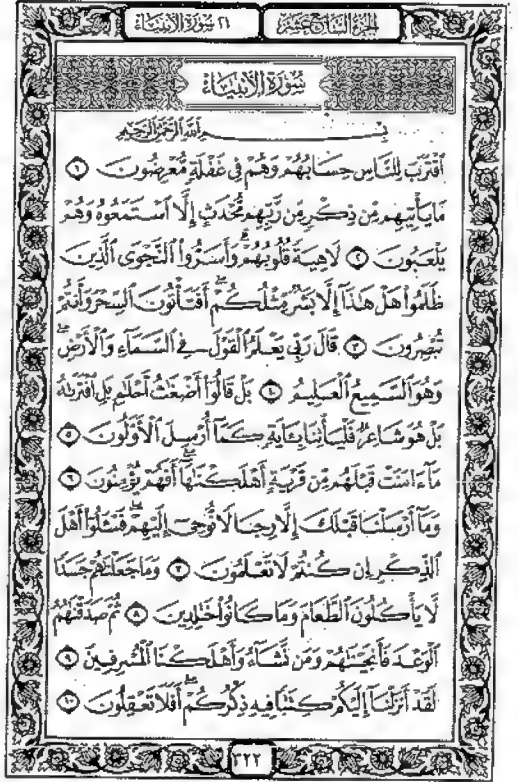 الجزء السابع عشر
٢١ سورة الأنبياء
سُورَةُ الْأَنْبِيَاءِ
بِسْمِ اللَّهِ الرَّحْمَٰنِ الرَّحِيمِ
ٱقْتَرَبَ لِلنَّاسِ حِسَابُهُمْ وَهُمْ فِي غَفْلَةٍ مُّعْرِضُونَ ١
مَا يَأْتِيهِم مِّن ذِكْرٍ مِّن رَّبِّهِم مُّحْدَثٍ إِلَّا ٱسْتَمَعُوهُ وَهُمْ
يَلْعَبُونَ ٢ لَاهِيَةً قُلُوبُهُمْ ۗ وَأَسَرُّوا۟ ٱلنَّجْوَى ٱلَّذِينَ
ظَلَمُوا۟ هَلْ هَٰذَآ إِلَّا بَشَرٌ مِّثْلُكُمْ ۖ أَفَتَأْتُونَ ٱلسِّحْرَ وَأَنتُمْ
تُبْصِرُونَ ٣ قَالَ رَبِّي يَعْلَمُ ٱلْقَوْلَ فِي ٱلسَّمَآءِ وَٱلْأَرْضِ ۖ
وَهُوَ ٱلسَّمِيعُ ٱلْعَلِيمُ ٤ بَلْ قَالُوٓا۟ أَضْغَٰثُ أَحْلَٰمٍۭ بَلِ ٱفْتَرَىٰهُ
بَلْ هُوَ شَاعِرٌ فَلْيَأْتِنَا بِـَٔايَةٍ كَمَآ أُرْسِلَ ٱلْأَوَّلُونَ ٥
مَآ ءَامَنَتْ قَبْلَهُم مِّن قَرْيَةٍ أَهْلَكْنَٰهَآ ۖ أَفَهُمْ يُؤْمِنُونَ ٦
وَمَآ أَرْسَلْنَا قَبْلَكَ إِلَّا رِجَالًا نُّوحِيٓ إِلَيْهِمْ ۖ فَسْـَٔلُوٓا۟ أَهْلَ
ٱلذِّكْرِ إِن كُنتُمْ لَا تَعْلَمُونَ ٧ وَمَا جَعَلْنَٰهُمْ جَسَدًا
لَّا يَأْكُلُونَ ٱلطَّعَامَ وَمَا كَانُوا۟ خَٰلِدِينَ ٨ ثُمَّ صَدَقْنَٰهُمُ
ٱلْوَعْدَ فَأَنجَيْنَٰهُمْ وَمَن نَّشَآءُ وَأَهْلَكْنَا ٱلْمُسْرِفِينَ ٩
لَقَدْ أَنزَلْنَآ إِلَيْكُمْ كِتَٰبًا فِيهِ ذِكْرُكُمْ ۖ أَفَلَا تَعْقِلُونَ ١٠
٣٢٢